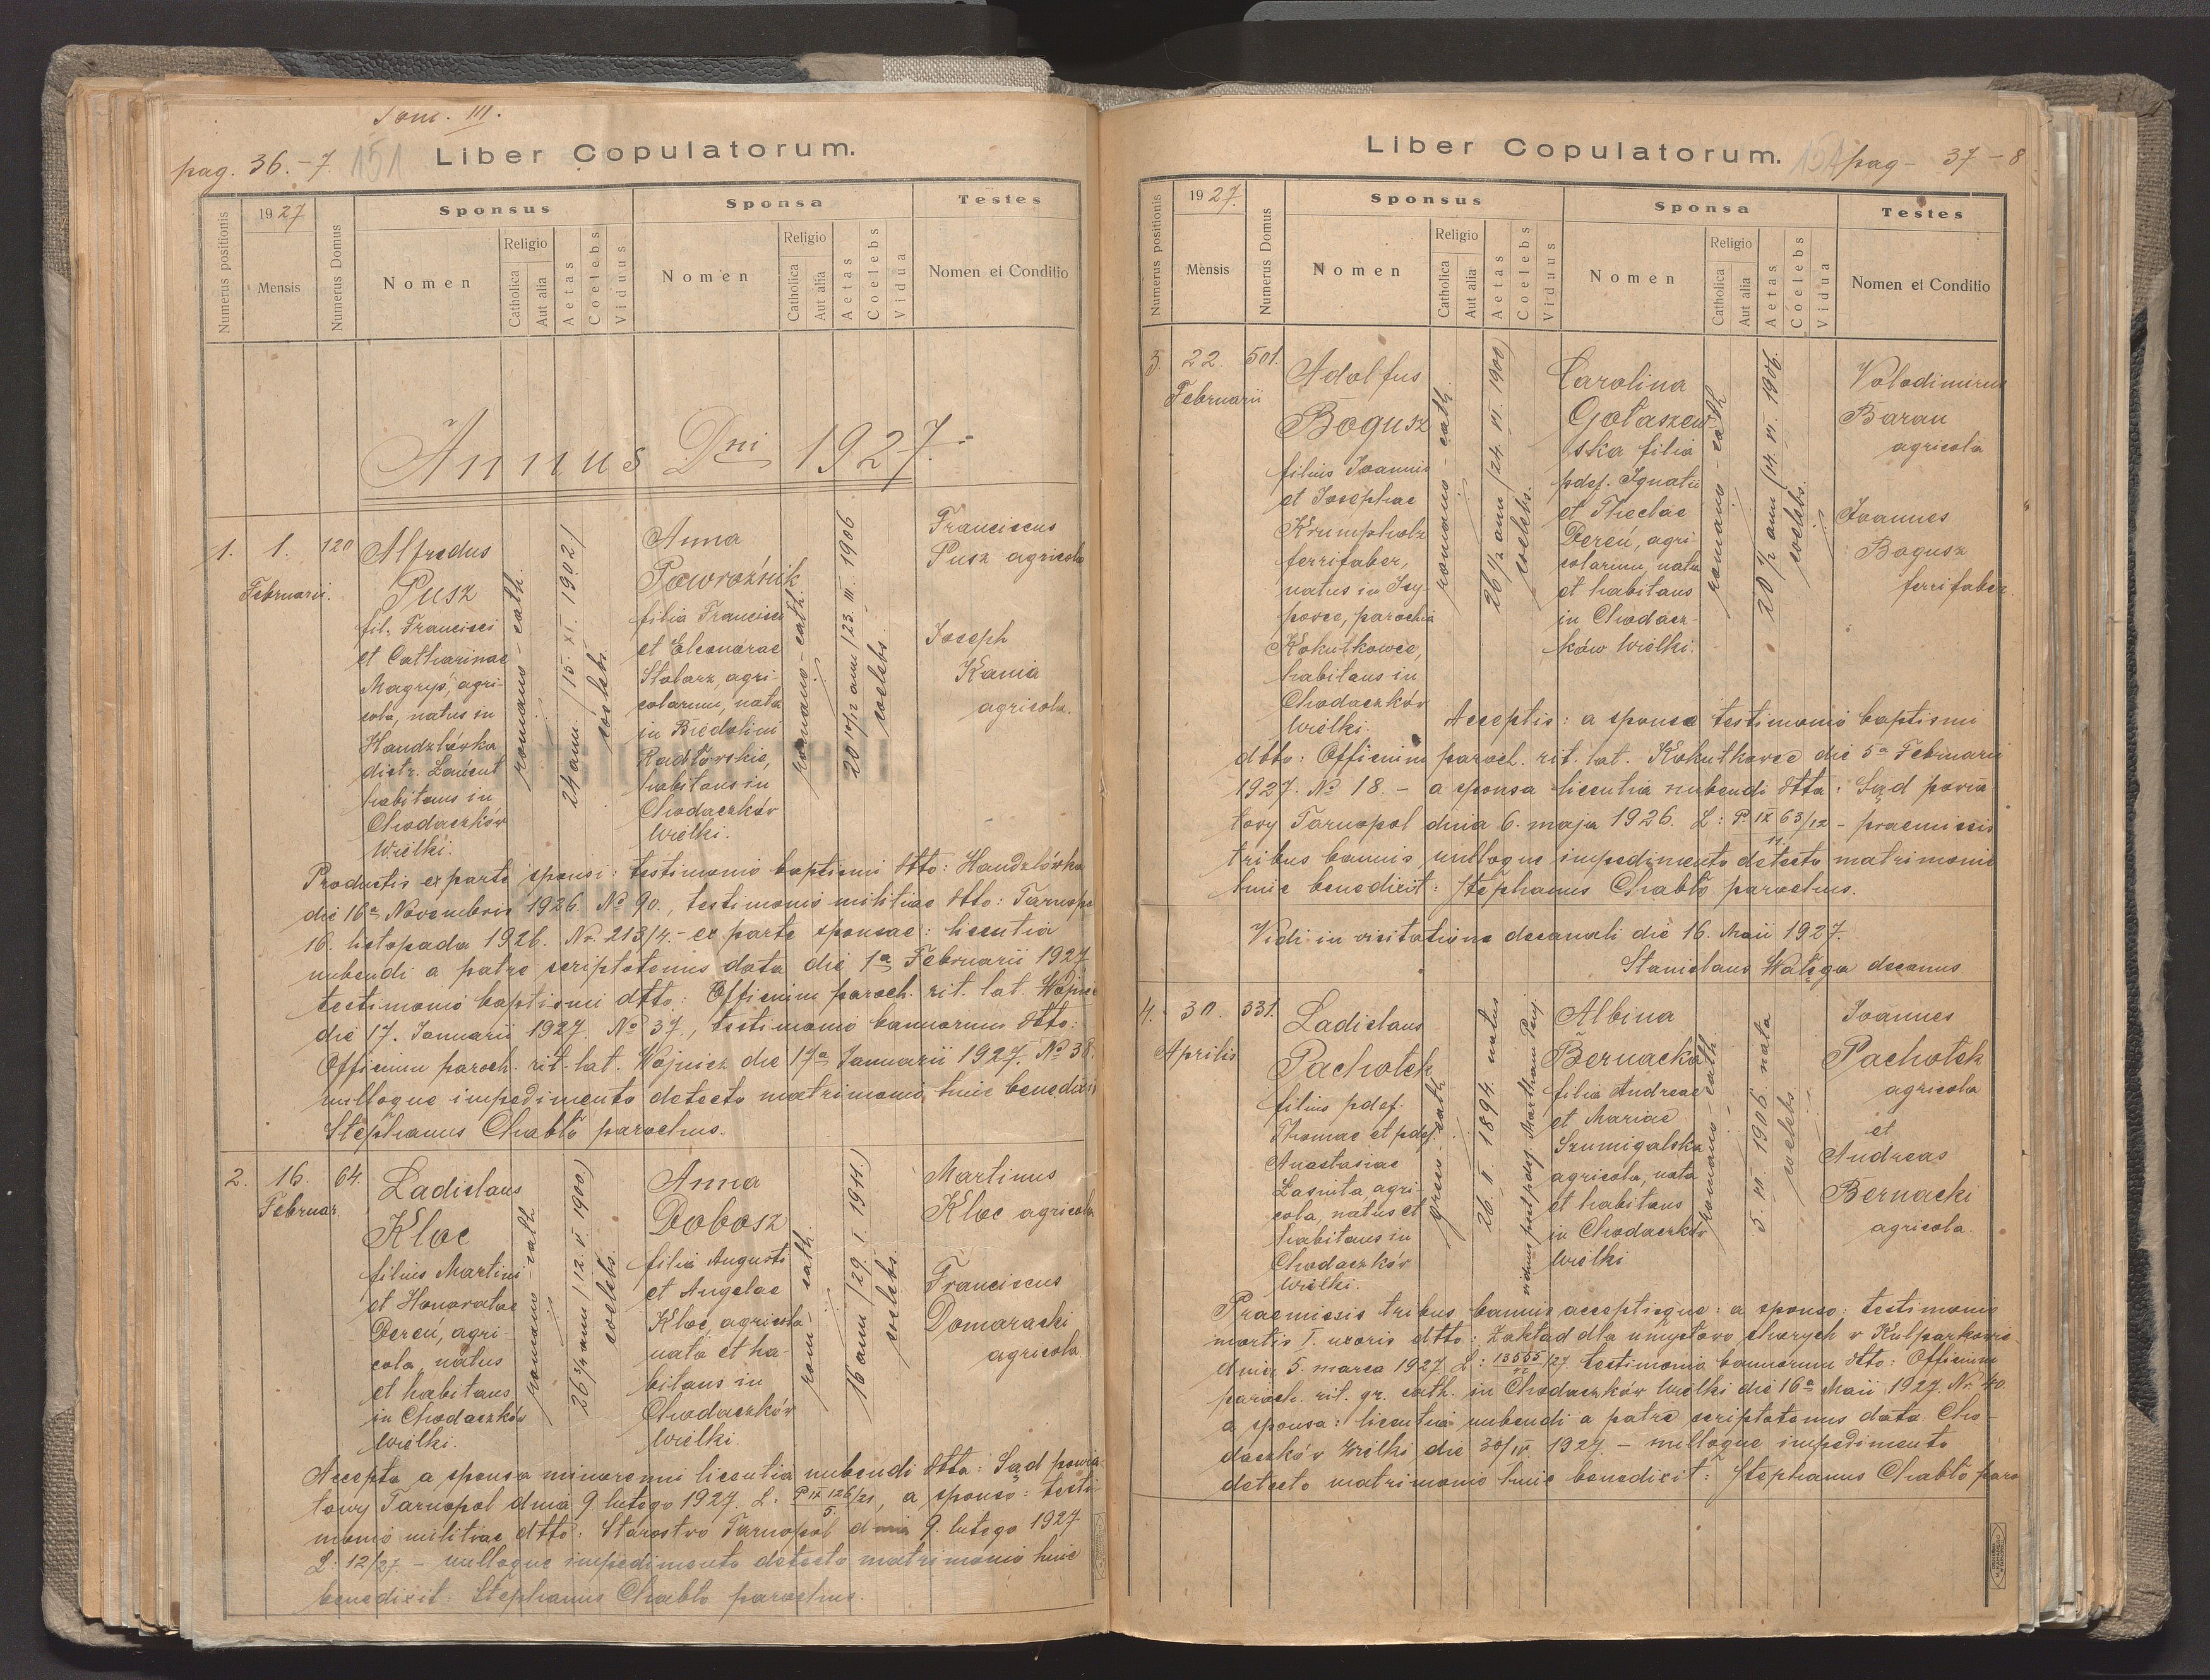 Tom. III.
pag. 36.-7. 151 Liber Copulatorum.
Numerus positionis
1927
Mensis
Numerus Domus
Sponsus
Nomen
Religio
Catholica
Aut alia
Aetas
Coelebs
Viduus
Sponsa
Nomen
Religio
Catholica
Aut alia
Aetas
Coelebs
Vidua
Testes
Nomen et Conditio
Annus Dni 1927.
1.
1.
Februarii.
120
Alfredus
Pusz
fil. Francisci
et Catharinae
Magryś, agri-
cola, natus in
Handzlówka
distr. Łańcut
habitans in
Chodaczków
Wielki.
romano-cath.
24 ann. /15. XI. 1902/
coelebs.
Anna
Powroźnik
filia Francisci
et Eleonorae
Stolarz, agri-
colarum, nata
in Biedolini
Radłowskie,
habitans in
Chodaczków
Wielki.
romano-cath.
20 10/12 ann /23. III. 1906
coelebs.
Franciscus
Pusz agricola
Joseph
Kania
agricola.
Productis ex parte sponsi: testimonio baptismi dtto: Handzlówka
die 16a Novembris 1926 No 90., testimonio militiae dtto: Tarnopol
16. listopada 1926. Nr. 213/4.- ex parte sponsae: licentia
nubendi a patre scriptotenus data die 1a Februarii 1927
testimonio baptismi dtto: Officium paroch. rit. lat. Wojnicz
die 17. Januarii 1927. No 37., testimonio bannorum dtto:
Officium paroch. rit. lat. Wojnicz die 17a Januarii 1927. No 38.
nulloque impedimento detecto matrimonio huic benedixit
Stephanus Chabło parochus.
2.
16.
Februar.
64.
Ladislaus
Kloc
filius Martini
et Honoratae
Dereń, agri-
cola, natus
et habitans
in Chodaczków
Wielki.
romano-cath
26 3/4 ann /12. V. 1900)
coelebs.
Anna
Dobosz
filia Augusti
et Angelae
Kloc, agricola
nata et ha-
bitans in
Chodaczków
Wielki.
rom.-cath.
16 ann /29. I. 1911.)
coelebs.
Martinus
Kloc agricola
Franciscus
Domaracki
agricola.
Accepta a sponsa minorenni licentia nubendi dtta: Sąd powia-
towy Tarnopol dnia 9. lutego 1927. L: P IX 126/21, a sponso: testi-
5.
monio militiae dtto: Starostwo Tarnopol dnia 9. lutego 1927
L. 12/27. - nulloque impedimento detecto matrimonio huic
benedixit: Stephanus Chabło parochus.
Liber Copulatorum. pag - 37-8
Numerus positionis
1927.
Mensis
Numerus Domus
Sponsus
Nomen
Religio
Catholica
Aut alia
Aetas
Coelebs
Viduus
Sponsa
Nomen
Religio
Catholica
Aut alia
Aetas
Coelebs
Vidua
Testes
Nomen et Conditio
3.
22.
Februarii
501.
Adolfus
Bogusz
filius Joannis
et Josephae
Krumpholz
ferrifaber,
natus in Isy-
powce, parochia
Kokutkowce,
habitans in
Chodaczków
Wielki.
romano-cath.
coelebs.
Carolina
Gołaszew-
ska filia
pdef. Ignatii
et Theclae
Dereń, agri-
colarum, nata
et habitans
in Chodacz-
ków Wielki.
romano-cath
coelebs.
Volodimirus
Baran
agricola
Joannes
Bogusz
ferrifaber.
Acceptis: a sponso testimonio baptismi
dtto: Officium paroch. rit. lat. Kokutkowce die 5a Februarii
1927. No 18. - a sponsa licentia nubendi dtta: Sąd powia-
towy Tarnopol dnia 6. maja 1926. L: P. IX 63/12 - praemissis
11
tribus bannis nulloque impedimento detecto matrimonio
huic benedixit: Stephanus Chabło parochus.
Vidi in visitatione decanali die 16. Maii 1927.
Stanislaus Wałęga decanus.
4.
30.
Aprilis
331.
Ladislaus
Pachołek
filius pdef.
Thomae et pdef.
Anastasiae
Łasnita, agri-
cola, natus et
habitans in
Chodaczków
Wielki.
graeco-cath
1894. natus
viduus post pdef. Martham
Albina
Bernacka
filia Andreae
et Mariae
Szumigalska
agricola, nata
et habitans
in Chodaczków
Wielki
romano-cath.
1906 nata
coelebs
Joannes
Pachołek
agricola
et
Andreas
Bernacki
agricola.
Praemissis tribus bannis acceptisque: a sponso: testimonio
mortis I. uxoris dtto: Zakład dla umysłowo chorych w Kulparkowie
dnia 5. marca 1927 L: 13555/27 testimonio bannorum dtto: Officium
paroch. rit. gr. cath. in Chodaczków Wielki die 16a Maii 1927. Nr 40.
a sponsa: licentia nubendi a patre scriptotenus data. Cho-
daczków Wielki die 30/IV. 1927. - nulloque impedimento
detecto matrimonio huic benedixit: Stephanus Chabło paro